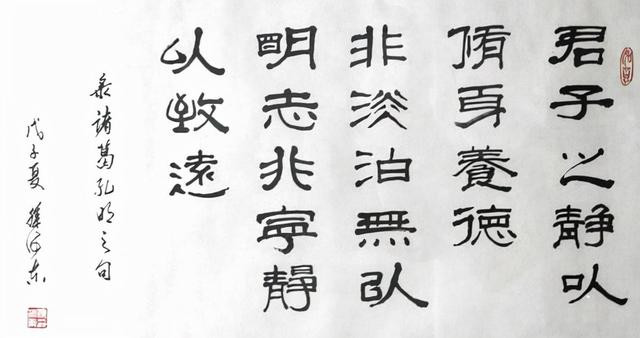 君子之静以
脩身養德
非淡泊無以
明志非寧静
以致遠
录諸葛孔明之句
戊子夏